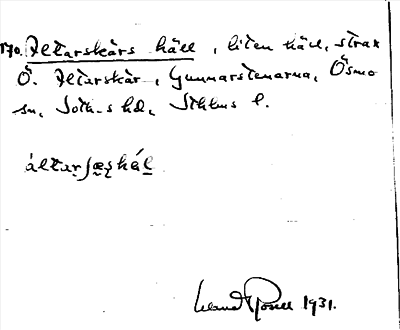 170. Altarskärs häll, liten häll, strax
Ö. Altarskär, Gunnarstenarna, Ösmo
sn, Soth-s hd, Sthlms l.
áltarʃæʂhál
1931.